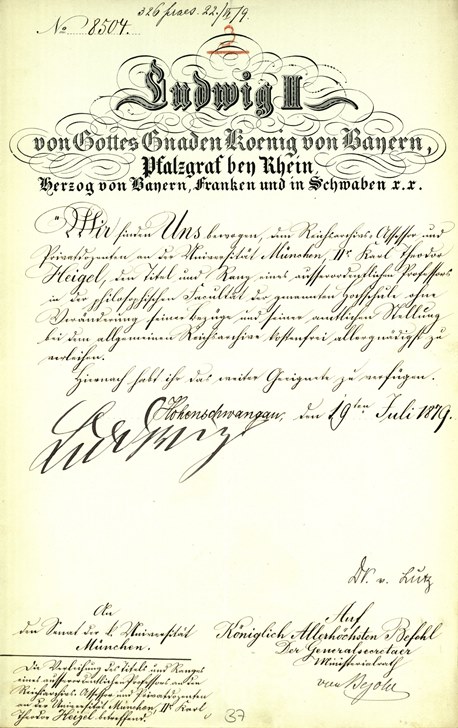 326 praes. 22./VII 79.
No 8504.
2
Ludwig II
von Gottes Gnaden Koenig von Bayern,
Pfalzgraf bey Rhein
Herzog von Bayern, Franken und in Schwaben x.x.
Wir finden Uns bewogen, dem Reichsarchivs-Assessor und
Privatdozenten an der Universität München, Dr. Karl Theodor
Heigel, den Titel und Rang eines ausserordentlichen Professors
in der philosophischen Facultät der genannten Hochschule ohne
Veränderung seiner bezüge und seiner amtlichen Stellung
bei dem allgemeinen Reichsarchive kostenfrei allergnädigst zu
verleihen.
Hienach habt ihr das weiter Geeignete zu verfügen.
Hohenschwangau, den 19ten Juli 1879.
Ludwig
Dr. v. Lutz
An
den Senat der k. Universität
München.
Auf
Königlich Allerhöchsten Befehl
Der Generalsecretaer
Ministerialrath
Die Verleihung des Titels und Ranges
eines ausserordentlichen Professors an den
Reichsarchivs-Assessor und Privatdozenten
an der Universität München, Dr. Karl
Theodor Heigel betreffend.
37